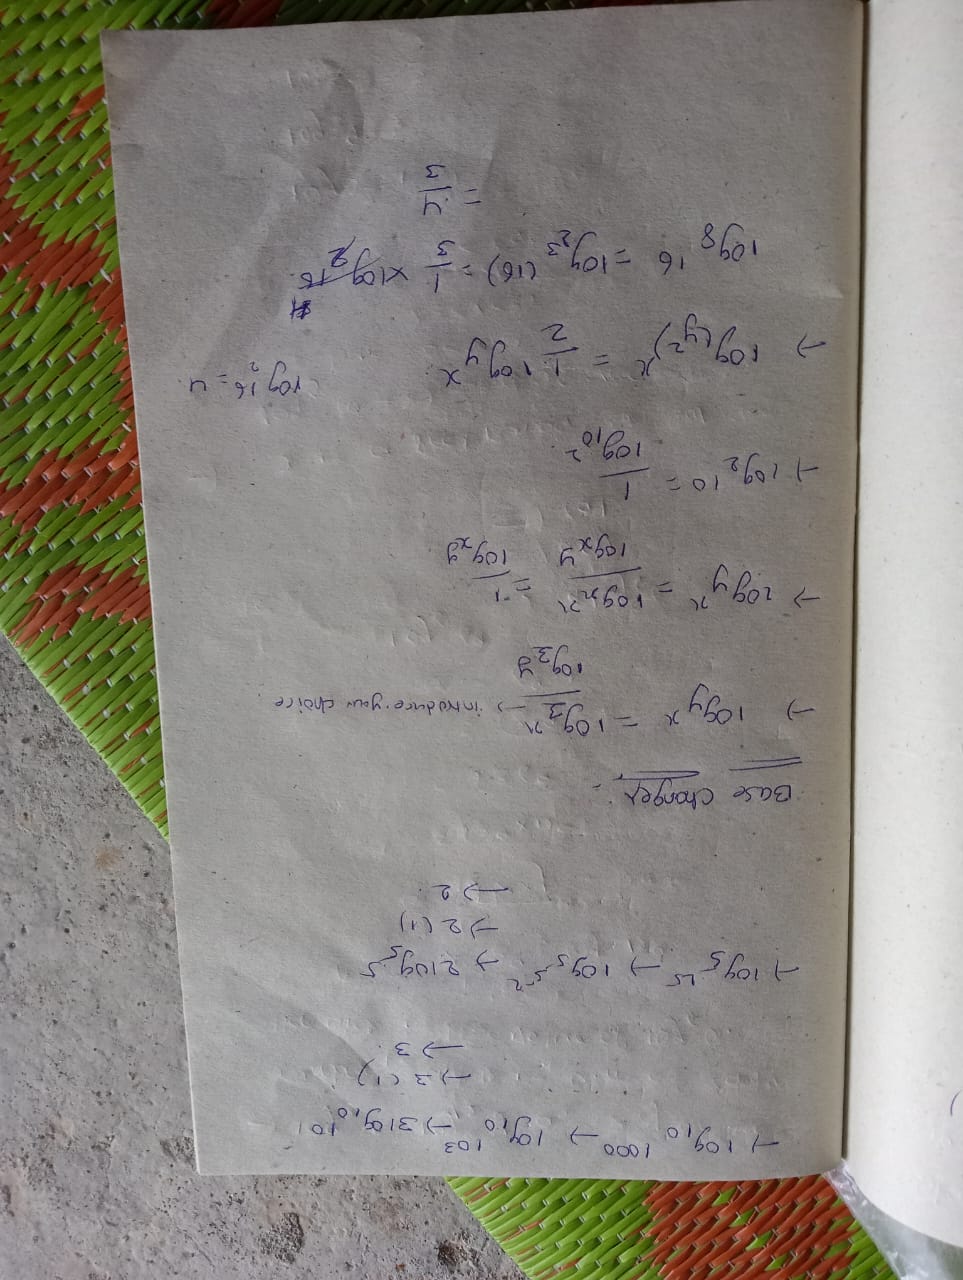 → log₁₀ 1000 → log₁₀ 10³ → 3 log₁₀ 10
→ 3 (1)
→ 3.
→ log₅ 25 → log₅ 5² → 2 log₅ 5
→ 2 (1)
→ 2.
Base changes :-
→ log_y x = log₃ x / log₃ y → introduce your choice
→ log_y x = log_x x / log_x y = 1 / log_x y
→ log₂ 10 = 1 / log₁₀ 2.
→ log_(y²) x = 1/2 log_y x
log 16₂ = 4.
log₈ 16 = log₂³ (16) = 1/3 × log₂ 16 4
= 4/3